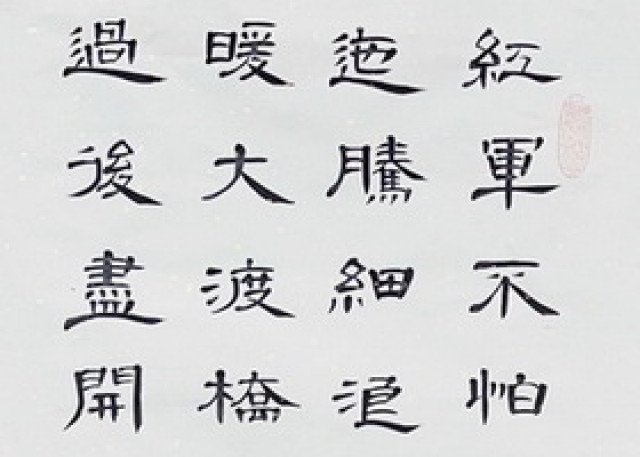 紅軍不怕
迤騰細浪
暖大渡橋
過後盡開